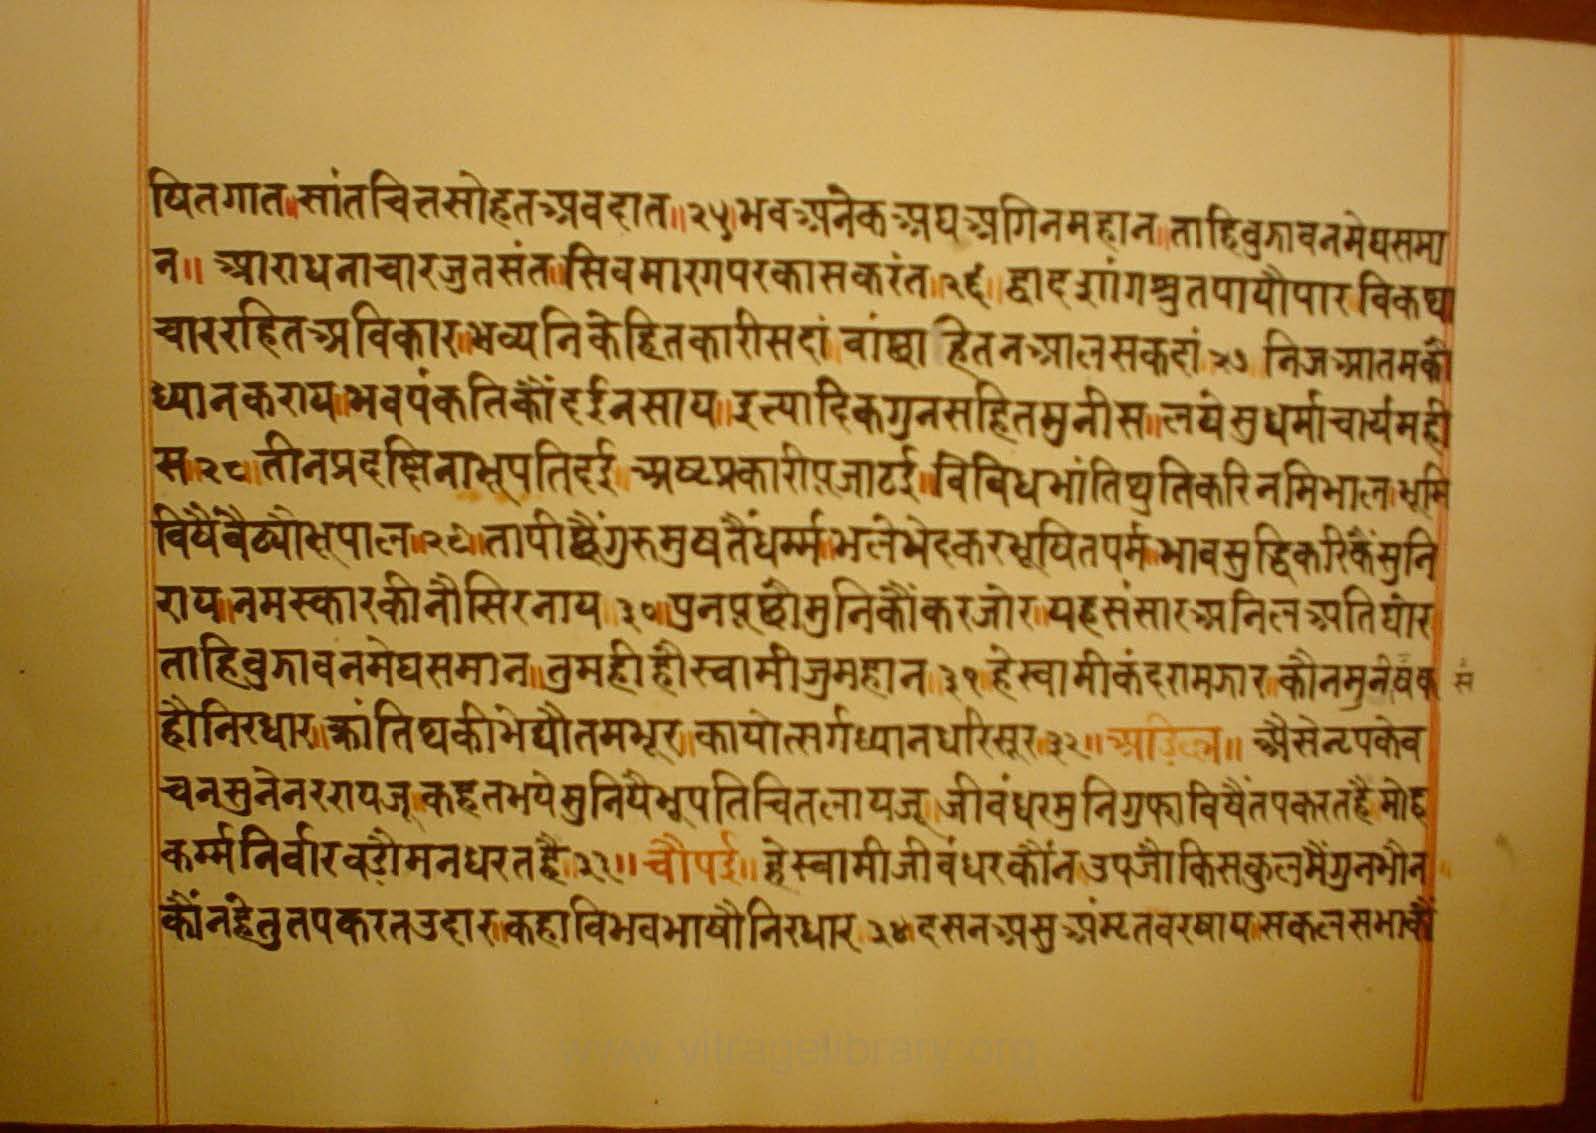 षितगात॥सांतचित्तसोहतअवदात॥२५॥भवअनेकअघअगिनमहान॥ताहिबुझावनमेघसमा
न॥ आराधनाचारजुतसंत॥सिवमारगपरकासकरंत॥२६॥द्वादशांगश्रुतपायौपार॥विकथा
चाररहितअविकार॥भव्यनिकेहितकारीसदां॥वांछा हेतनआलसकदां॥२७॥निजआतमकौ
ध्यानकराय॥भवपंकतिकौंदईनसाय॥इत्यादिकगुनसहितमुनीस॥लयेसुधर्माचार्यमही
स॥२८॥तीनप्रदक्षिनाभूपतिदई॥अष्टप्रकारीपूजाठई॥विविधभांतिथुतिकरिनमिभाल॥भूमि
विषैबैठ्यौभूपाल॥२९॥तापीछैंगुरुमुषतैंधर्म्म॥भलेभेदकरभूषितपर्म॥भावसुद्धिकरिकैंमुनि
राय॥नमस्कारकीनौसिरनाय॥३०॥पुनपूछौमुनिकौंकरजोर॥यहसंसारअनिलअतिघोर
ताहिबुझावनमेघसमान॥तुमहीहौस्वामीजुमहान॥३१॥हेस्वामीकंदरामझार॥कौनमुनीषक सं
हौनिरधार॥क्रांतिथकीभेद्यौतमभूर॥कायोत्सर्गध्यानधरिसूर॥३२॥अडिल्ल॥ अैसेनृपकेव
चनसुनेनररायजू॥कहतभयेमुनियैभूपतिचितलायजू॥जीवंधरमुनिगुफाविषैंतपकरतहै॥मोह
कर्म्मनिर्वारवडौमनधरतहै॥३३॥चौपई॥हेस्वामीजीवंधरकौंन॥उपजौकिसकुलमैंगुनभौन॥
कौंनहेतुतपकरतउदार॥कहाविभवभाषौनिरधार॥३४॥दसनअसुअंमृतवरषाय॥सकलसभाकौं
www.vitragelibrary.org